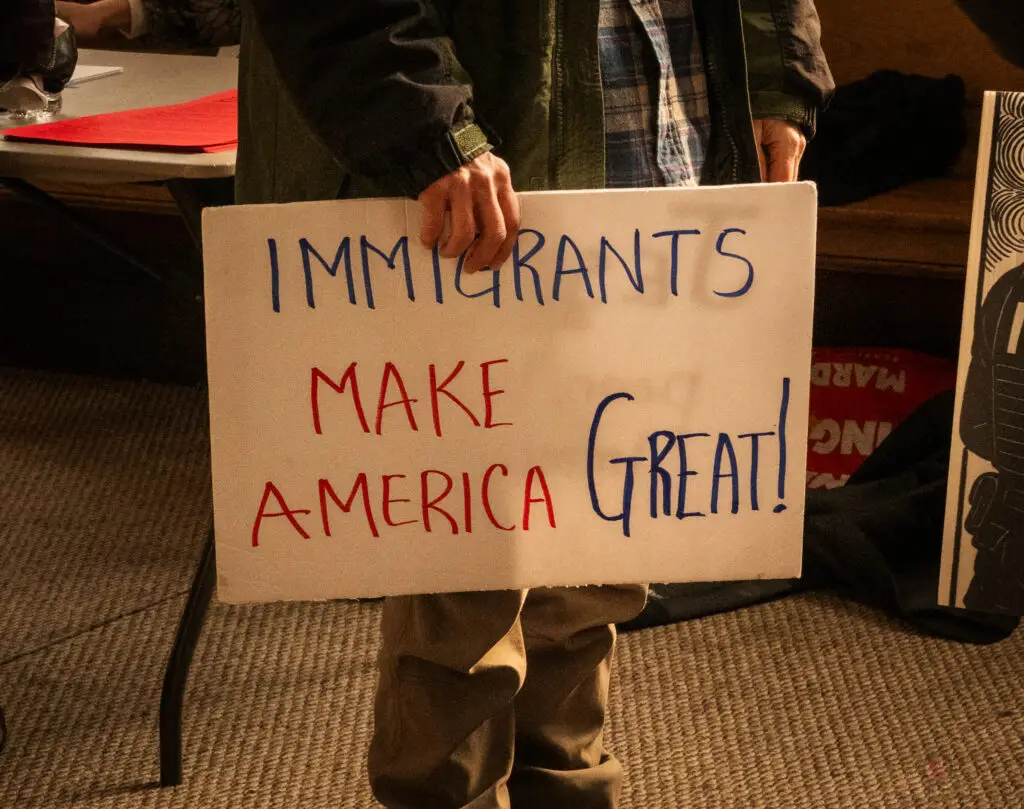 IMMIGRANTS
MAKE
AMERICA GREAT!
MARD
NG